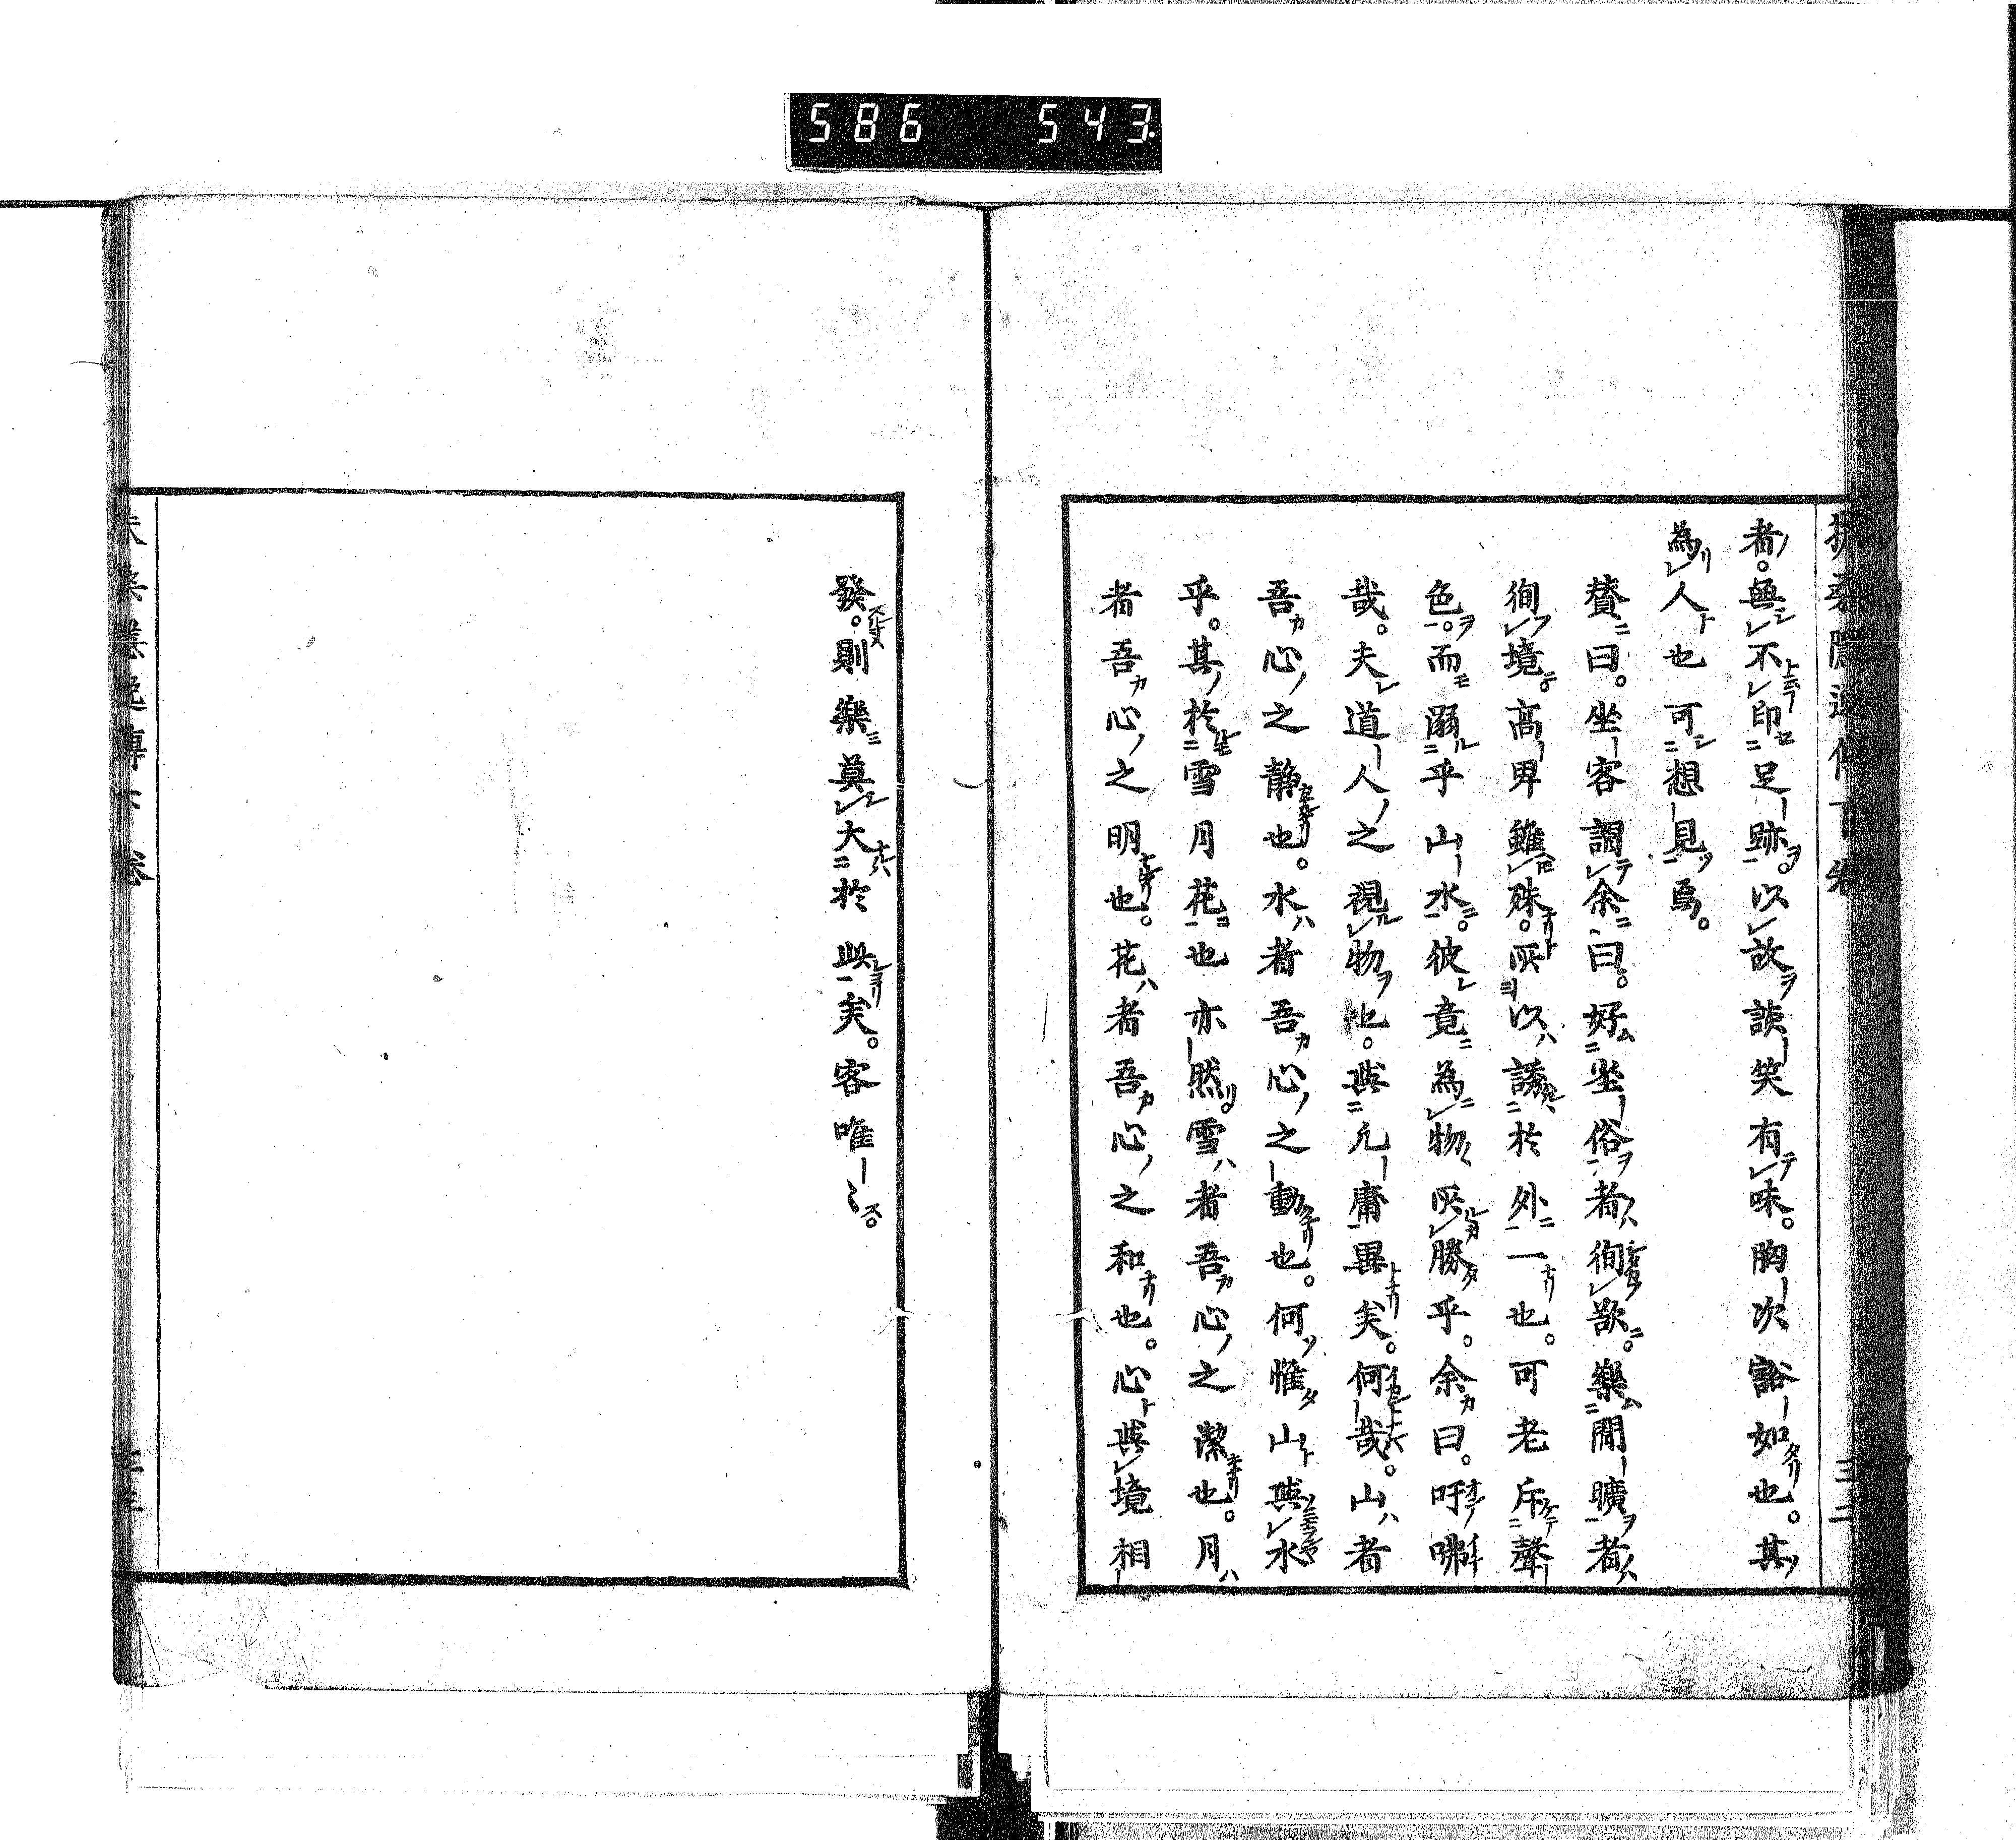 586 543
者。無不印足跡。以故談笑有味。胸次豁如也。其
為人也可想見焉。
賛曰。坐客謂余曰。好坐俗者。徇欲。樂閒曠者。
徇境。高卑雖殊。所以誘於外一也。可老斥聲
色。而溺乎山水。彼竟為物所勝乎。余曰。吁咈
哉。夫道人之視物也。與凡庸異矣。何哉。山者
吾心之静也。水者吾心之動也。何惟山與水
乎。其於雪月花也亦然。雪者吾心之潔也。月
者吾心之明也。花者吾心之和也。心與境相
發。則樂莫大於此矣。客唯〻。